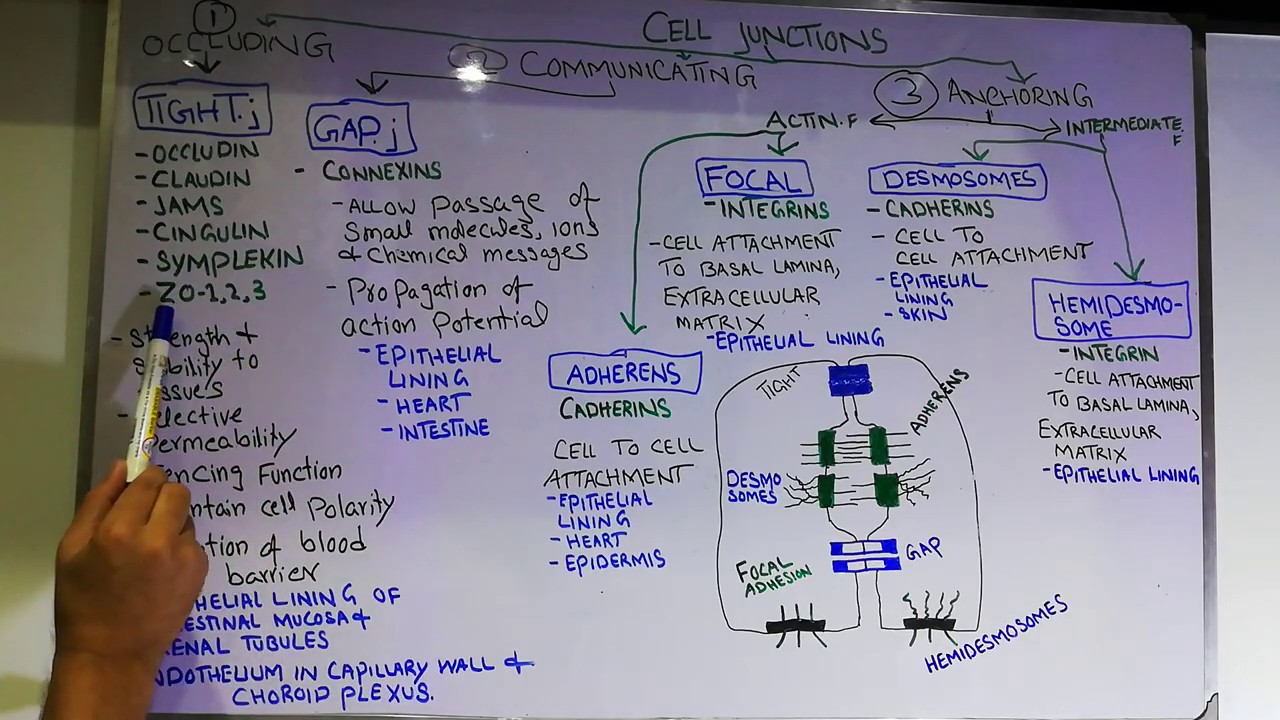 CELL JUNCTIONS
1
OCCLUDING
TIGHT.j
- OCCLUDIN
- CLAUDIN
- JAMS
- CINGULIN
- SYMPLEKIN
- ZO-1,2,3
- Strength +
to
- Selective
Permeability
Function
cell Polarity
of blood
barrier
LINING OF
MUCOSA +
TUBULES
IN CAPILLARY WALL +
CHOROID PLEXUS.
2 COMMUNICATING
GAP.j
- CONNEXINS
- ALLOW passage of
Small molecules, ions
& Chemical messages
- Propagation of
action Potential
- EPITHELIAL
LINING
- HEART
- INTESTINE
3 ANCHORING
ACTIN.F
INTERMEDIATE.
F
ADHERENS
CADHERINS
CELL TO CELL
ATTACHMENT
- EPITHELIAL
LINING
- HEART
- EPIDERMIS
FOCAL
- INTEGRINS
- CELL ATTACHMENT
TO BASAL LAMINA,
EXTRACELLULAR
MATRIX
- EPITHELIAL LINING
DESMOSOMES
- CADHERINS
- CELL TO
CELL ATTACHMENT
- EPITHELIAL
LINING
- SKIN
HEMIDESMO-
SOME
- INTEGRIN
- CELL ATTACHMENT
TO BASAL LAMINA,
EXTRACELLULAR
MATRIX
- EPITHELIAL LINING
TIGHT
ADHERENS
DESMO
SOMES
GAP
FOCAL
ADHESION
HEMIDESMOSOMES